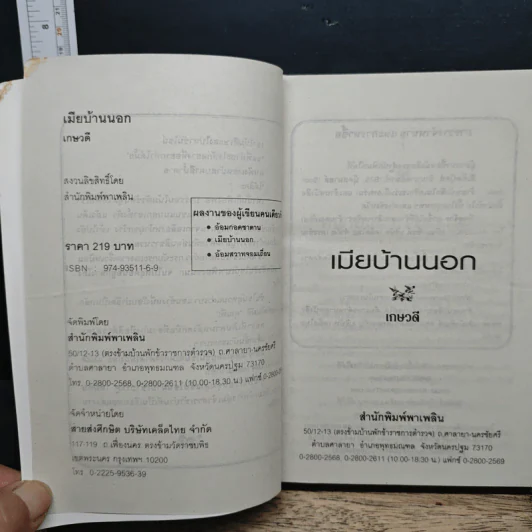 เมียบ้านนอก
เกษวดี
สงวนลิขสิทธิ์โดย
สำนักพิมพ์พาเพลิน
ราคา 219 บาท
ISBN : 974-93511-6-9
ผลงานของผู้เขียนคนเดียวกัน
อ้อมกอดซาตาน
เมียบ้านนอก
อ้อมสวาทจอมเถื่อน
จัดพิมพ์โดย
สำนักพิมพ์พาเพลิน
50/12-13 (ตรงข้ามบ้านพักข้าราชการตำรวจ) ถ.ศาลายา-นครชัยศรี
ตำบลศาลายา อำเภอพุทธมณฑล จังหวัดนครปฐม 73170
โทร. 0-2800-2568, 0-2800-2611 (10.00-18.30 น.) แฟกซ์ 0-280
จัดจำหน่ายโดย
สายส่งศึกษิต บริษัทเคล็ดไทย จำกัด
117-119 ถ.เฟื่องนคร ตรงข้ามวัดราชบพิธ
เขตพระนคร กรุงเทพฯ 10200
โทร. 0-2225-9536-39
เมียบ้านนอก
เกษวลี
สำนักพิมพ์พาเพลิน
50/12-13 (ตรงข้ามบ้านพักข้าราชการตำรวจ) ถ.ศาลายา-นครชัยศรี
ตำบลศาลายา อำเภอพุทธมณฑล จังหวัดนครปฐม 73170
0-2800-2568, 0-2800-2611 (10.00-18.30 น.) แฟกซ์ 0-2800-2569
8